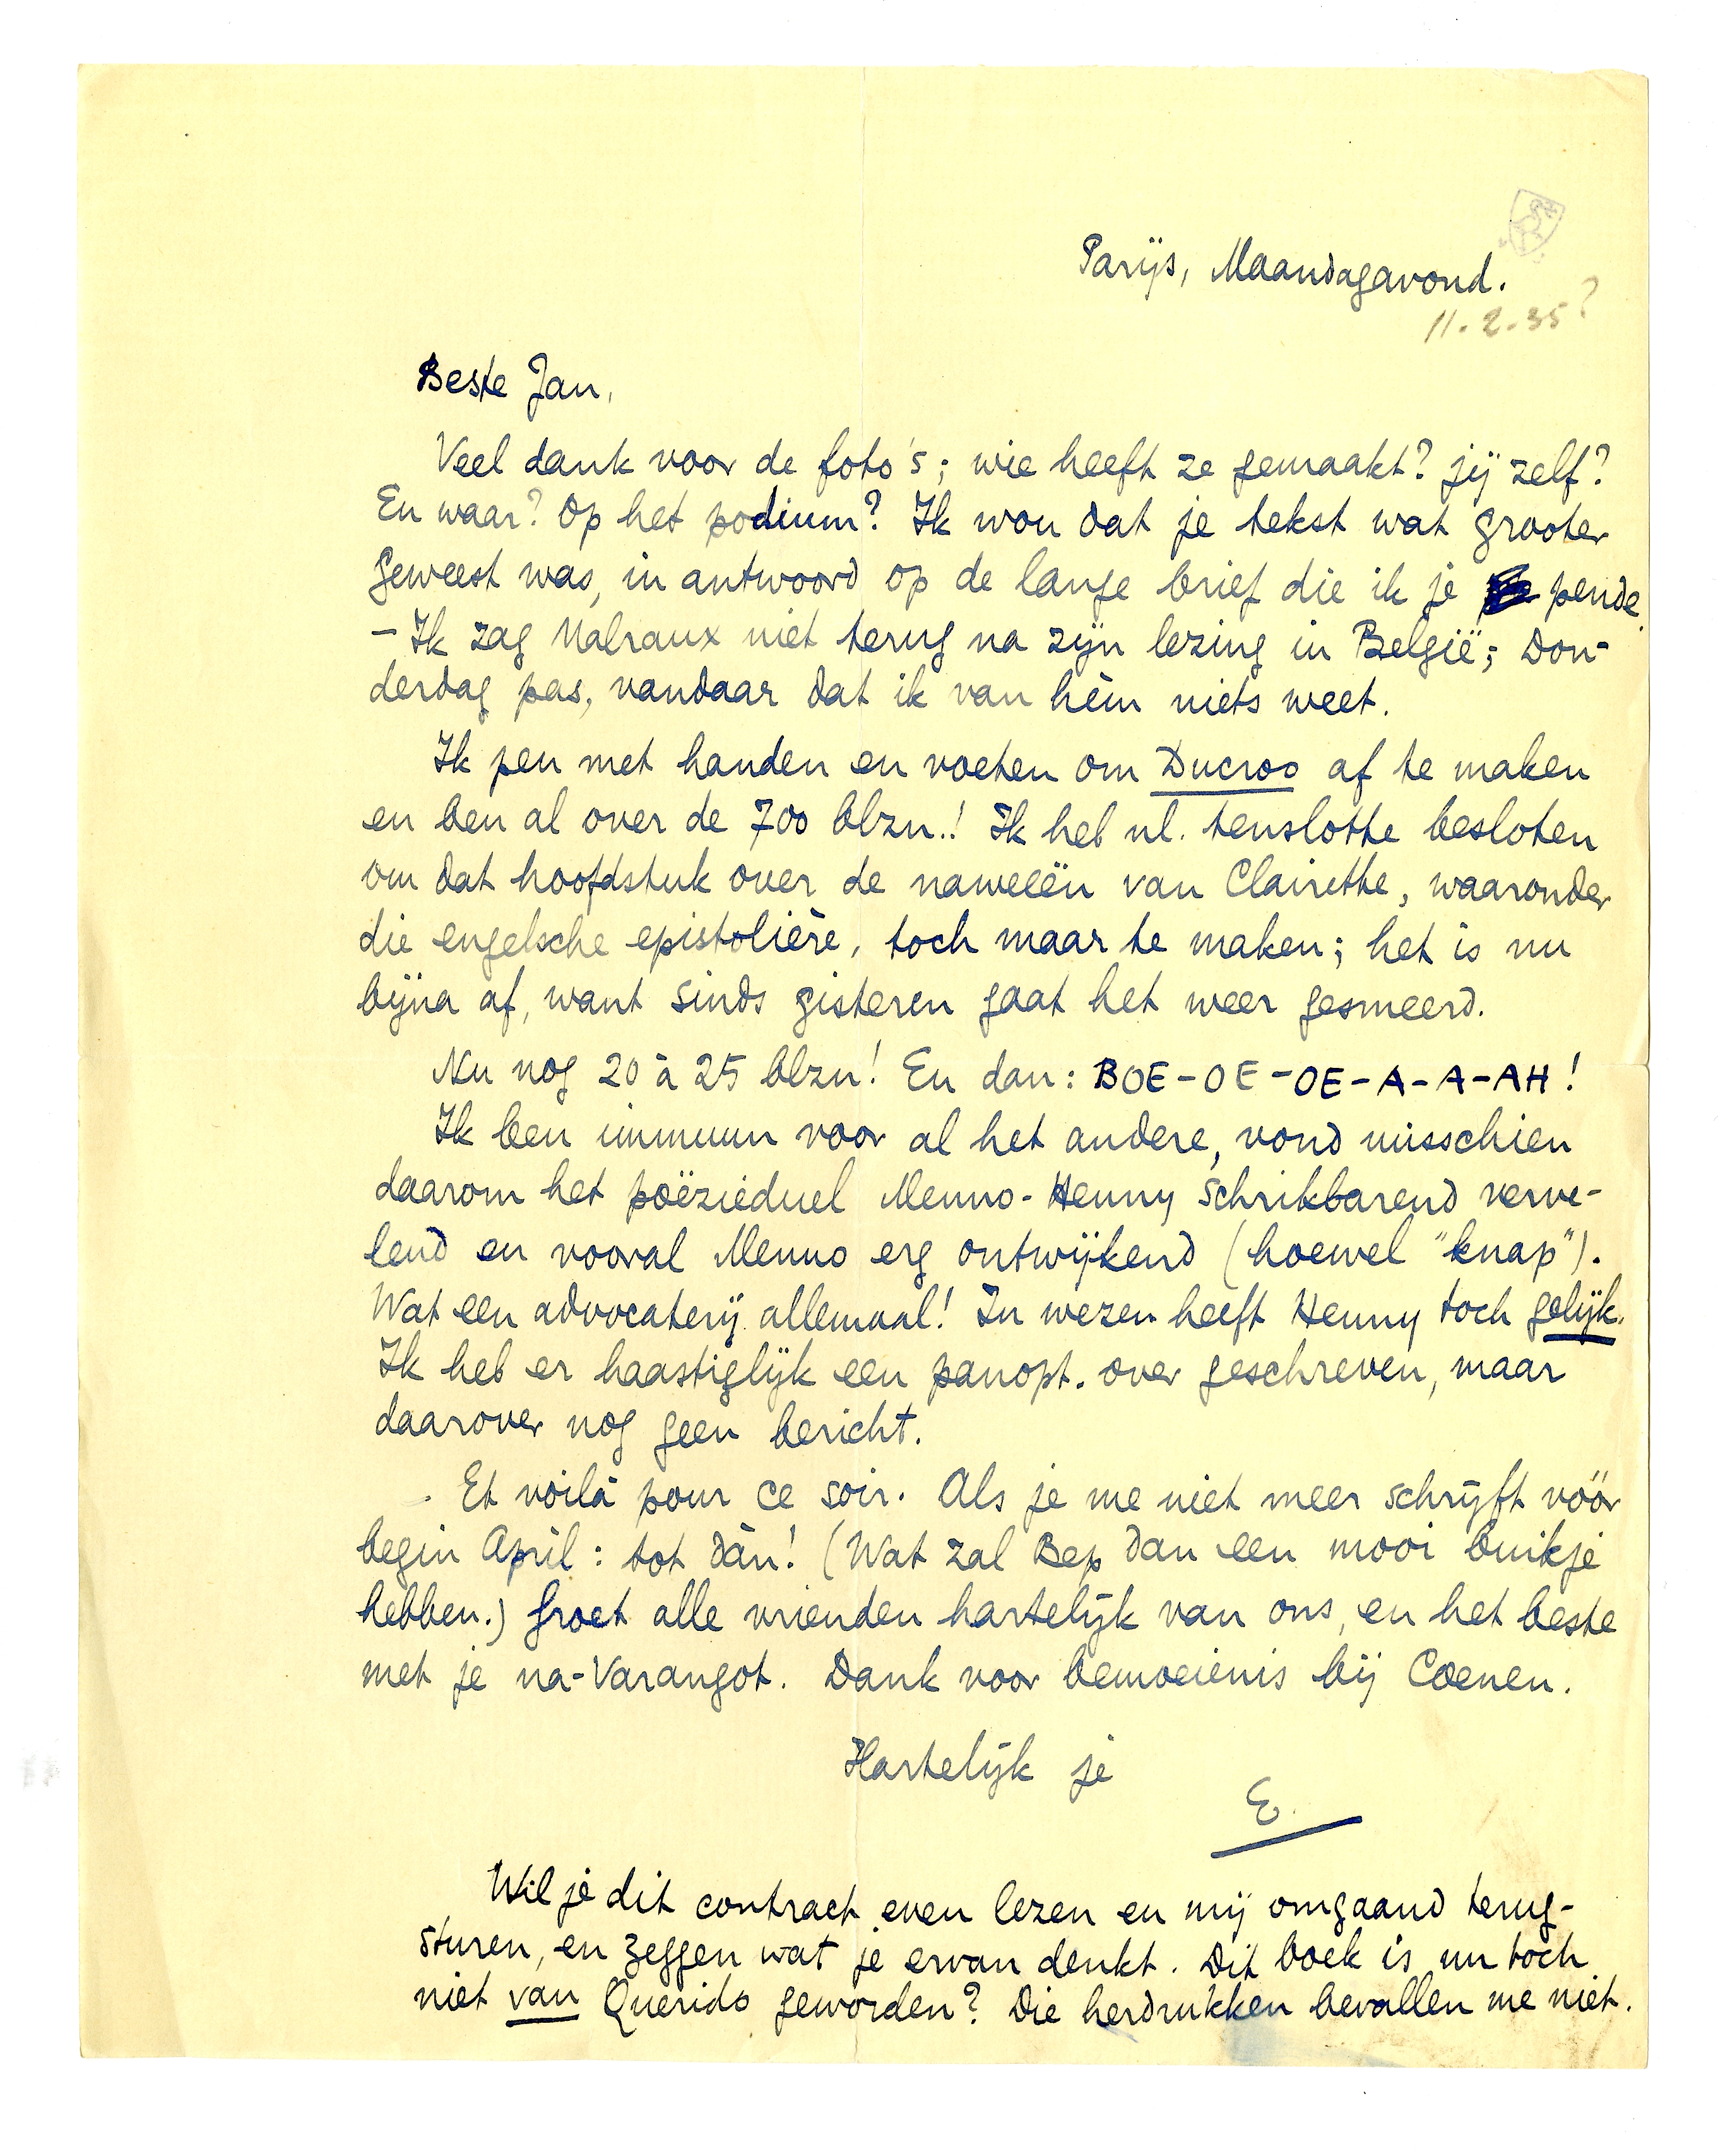 Parijs, Maandagavond.
11.2.35?
Beste Jan,
Veel dank voor de foto's; wie heeft ze gemaakt? jij zelf?
En waar? Op het podium? Ik wou dat je tekst wat grooter
geweest was, in antwoord op de lange brief die ik je pende.
— Ik zag Malraux niet terug na zijn lezing in België; Don-
derdag pas, vandaar dat ik van hèm niets weet.
Ik pen met handen en voeten om Ducroo af te maken
en ben al over de 700 blzn.! Ik heb nl. tenslotte besloten
om dat hoofdstuk over de naweeën van Clairette, waaronder
die engelsche epistolière, toch maar te maken; het is nu
bijna af, want sinds gisteren gaat het weer gesmeerd.
Nu nog 20 à 25 blzn! En dan: BOE-OE-OE-A-A-AH!
Ik ben immuun voor al het andere, vond misschien
daarom het poëzieduel Menno-Henny schrikbarend verve-
lend en vooral Menno erg ontwijkend (hoewel "knap").
Wat een advocaterij allemaal! In wezen heeft Henny toch gelijk.
Ik heb er haastiglijk een panopt. over geschreven, maar
daarover nog geen bericht.
Et voilà pour ce soir. Als je me niet meer schrijft vóór
begin April: tot dàn! (Wat zal Bep dan een mooi buikje
hebben.) Groet alle vrienden hartelijk van ons, en het beste
met je na-Varangot. Dank voor bemoeienis bij Coenen.
Hartelijk je
E.
Wil je dit contract even lezen en mij omgaand terug-
sturen, en zeggen wat je ervan denkt. Dit boek is nu toch
niet van Querido geworden? Die herdrukken bevallen me niet.